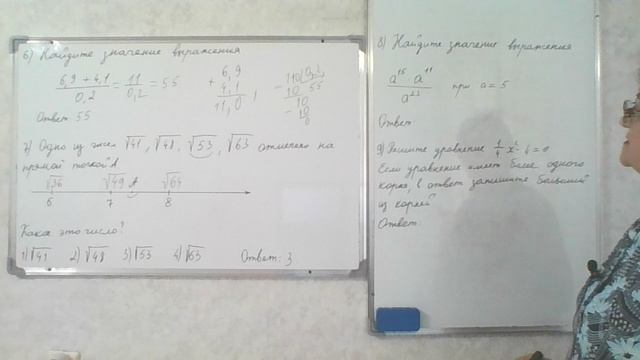 6) Найдите значение выражения
6,9 + 4,1 / 0,2 = 11 / 0,2 = 55
+ 6,9
4,1
11,0
Ответ: 55
7) Одно из чисел √41, √48, √53, √63 отмечено на
прямой точкой А
√36 √49 А √64
6 7 8
Какое это число?
1) √41 2) √48 3) √53 4) √63 Ответ: 3
8) Найдите значение выражения
a¹⁵ · a¹¹ / a²³ при a = 5
Ответ:
9) Решите уравнение 1/4 x² - 4 = 0
Если уравнение имеет более одного
корня, в ответ запишите больший
из корней
Ответ: